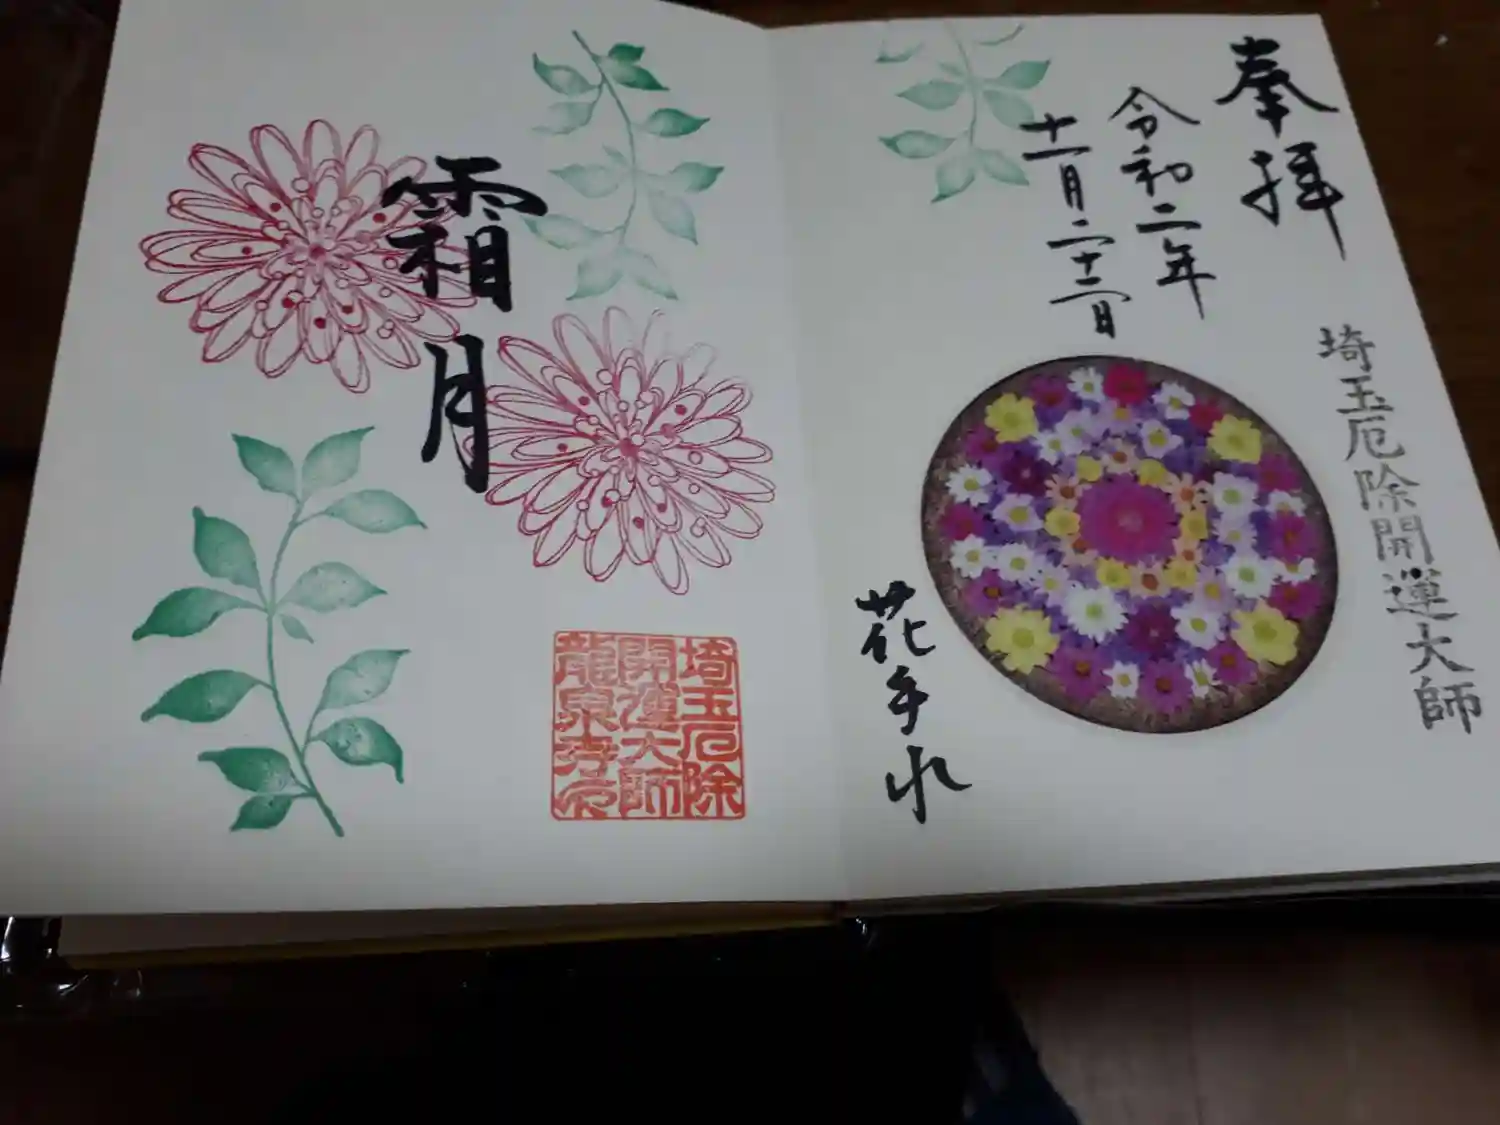 奉拝
埼玉厄除開運大師
令和二年
十一月二十二日
花手水
霜月
埼玉厄除
開運大師
龍泉寺印